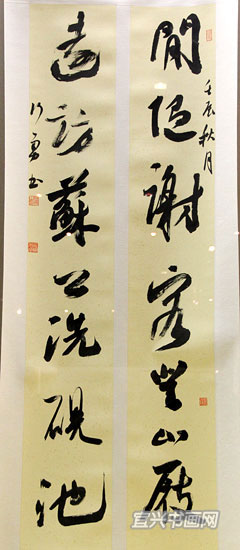 壬辰秋月
閒謝客登山屐
遠訪蘇公洗硯池
勇书
宜兴书画网